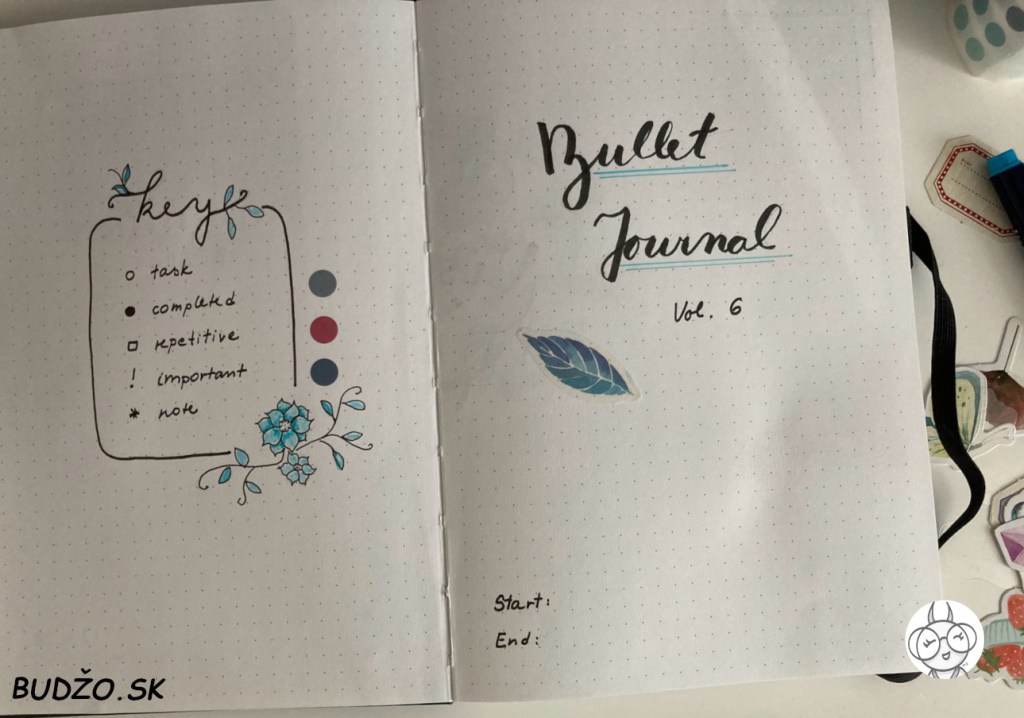 key
○ task
● completed
□ repetitive
! important
* note
Bullet
Journal
Vol. 6
Start:
End:
BUDŽO.SK